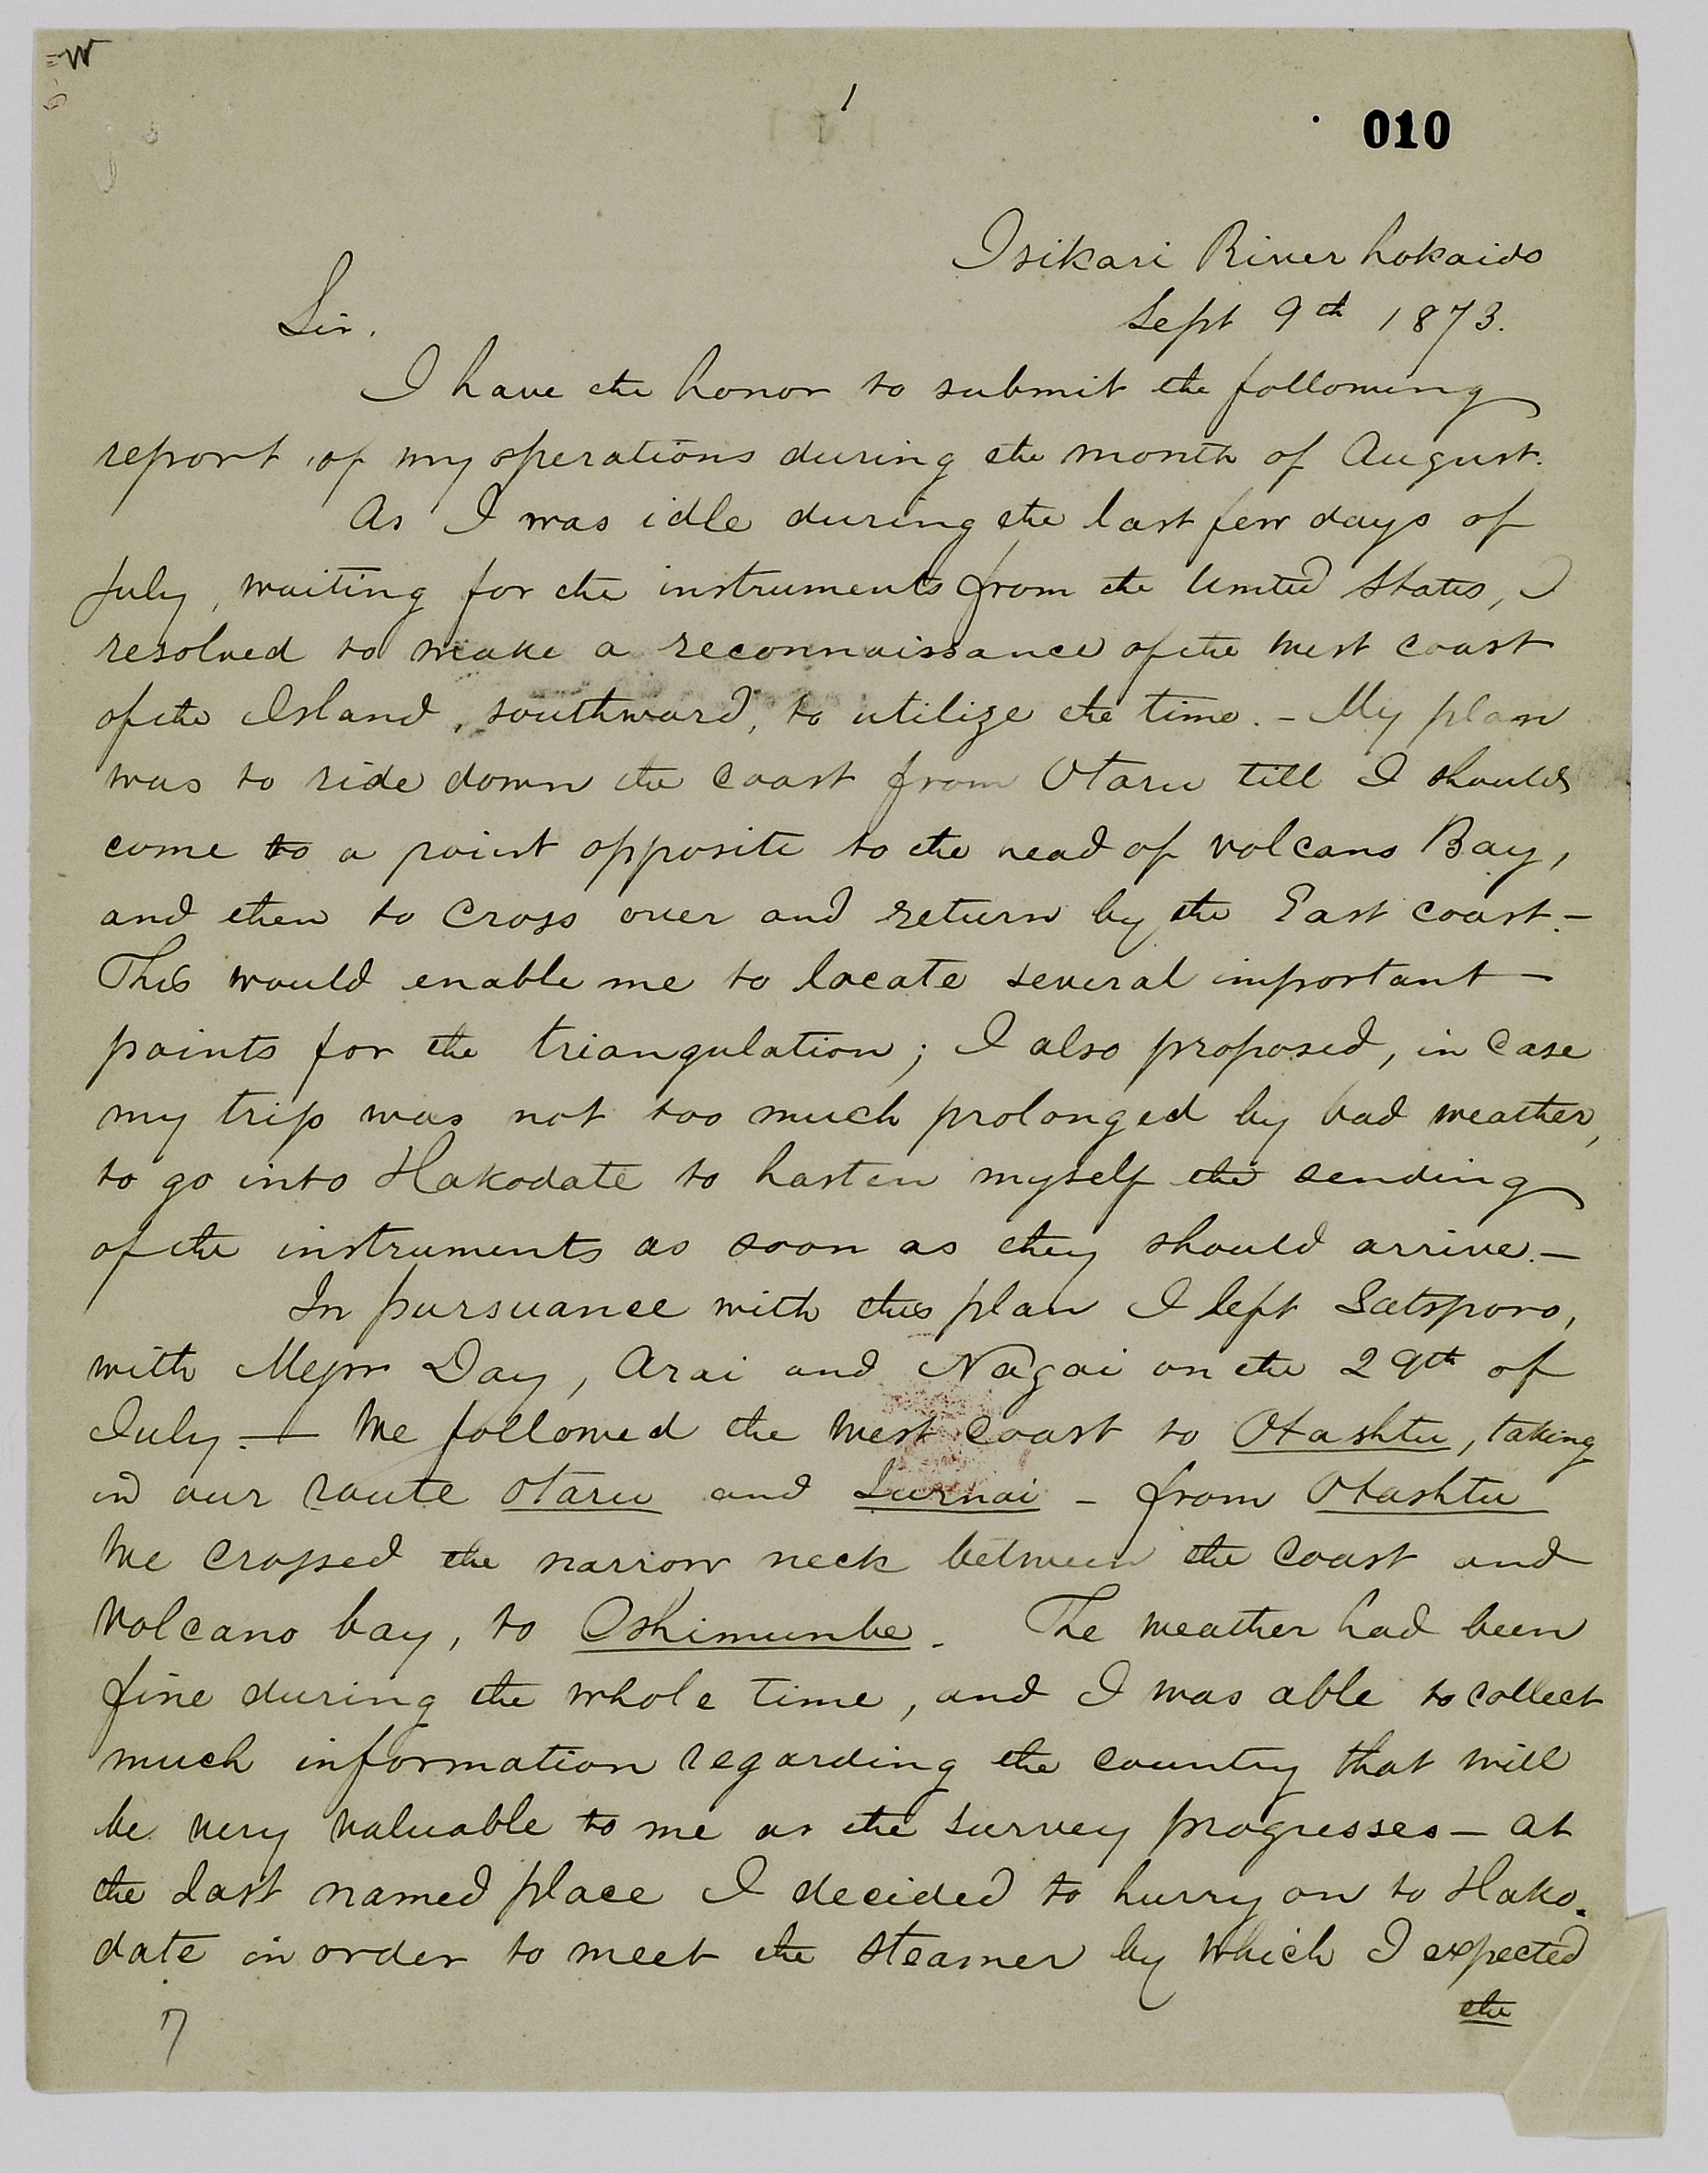 W
1
010
Isikari River hokaido
Sir.
Sept 9th 1873.
I have the honor to submit the following
report of my operations during the month of August.
As I was idle during the last few days of
July, waiting for the instruments from the United States, I
resolved to make a reconnaissance of the West coast
of the Island, southward, to utilize the time. - My plan
was to ride down the coast from Otaru till I should
come to a point opposite to the head of Volcano Bay,
and then to cross over and return by the East coast. -
This would enable me to locate several important -
points for the triangulation; I also proposed, in case
my trip was not too much prolonged by bad weather,
to go into Hakodate to hasten myself the sending
of the instruments as soon as they should arrive. -
In pursuance with this plan I left Satsporo,
with Messrs Day, Arai and Nagai on the 29th of
July. - We followed the West coast to Otashtu, taking
in our route Otaru and Iwrnai - from Otashtu
We crossed the narrow neck between the coast and
Volcano bay, to Oshimunbe. The weather had been
fine during the whole time, and I was able to collect
much information regarding the country that will
be very valuable to me as the survey progresses - at
the last named place I decided to hurry on to Hako-
date in order to meet the steamer by which I expected
the
7